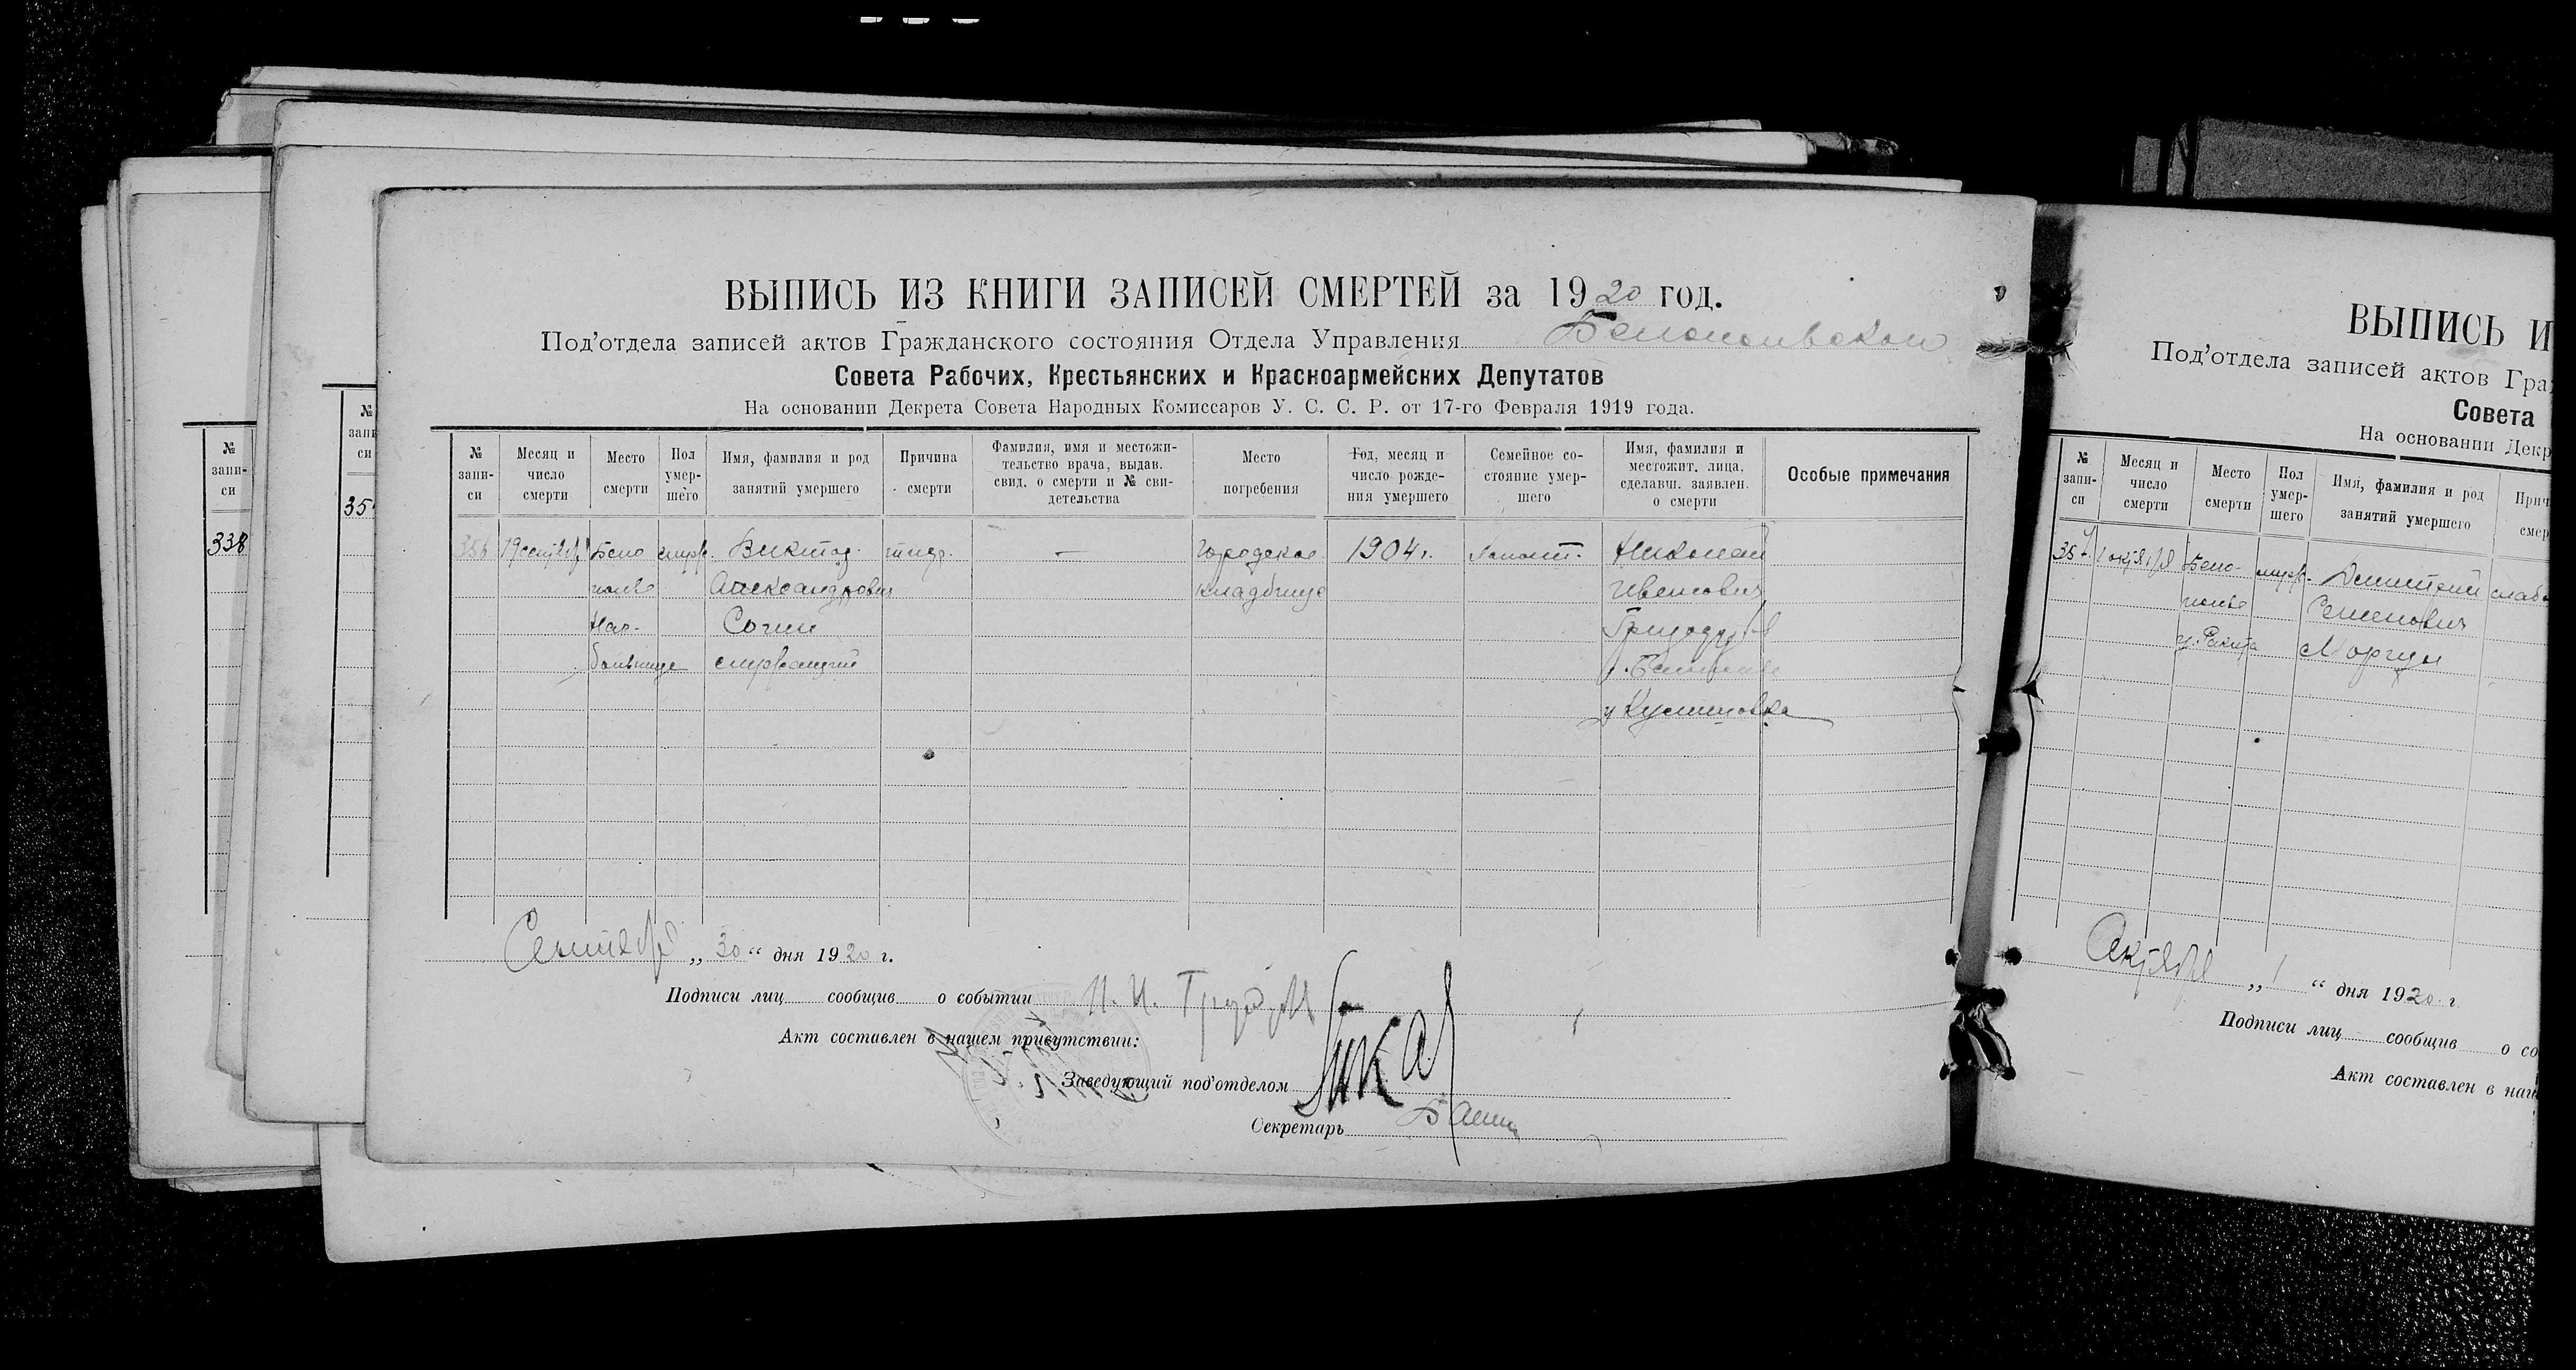 ВЫПИСЬ ИЗ КНИГИ ЗАПИСЕЙ СМЕРТЕЙ за 1920 год.
Под'отдела записей актов Гражданского состояния Отдела Управления
Совета Рабочих, Крестьянских и Красноармейских Депутатов
На основании Декрета Совета Народных Комиссаров У. С. С. Р. от 17-го Февраля 1919 года.
№ запи-
си
Месяц и
число
смерти
Место
смерти
Пол
умер-
шего
Имя, фамилия и род
занятий умершего
Причина
смерти
Фамилия, имя и местожи-
тельство врача, выдав.
свид. о смерти и № сви-
детельства
Место
погребения
Год, месяц и
число рожде-
ния умершего
Семейное со-
стояние умер-
шего
Имя, фамилия и
местожит. лица,
сделавш. заявлен.
о смерти
Особые примечания
356
19 сентябр
Бело
полье
Нар-
больнице
Виктор
Александрович
Сочин
—
городское
кладбище
1904 г.
холост.
Николай
Иванович
Сентября „ 30 “ дня 1920 г.
Подписи лиц сообщив о событии
Акт составлен в нашем присутствии:
Заведующий под'отделом
Секретарь
338
35
№
запи-
си
ВЫПИСЬ И
Под'отдела записей актов Гра
Совета
На основании Декр
№
запи-
си
Месяц и
число
смерти
Место
смерти
Пол
умер-
шего
Имя, фамилия и род
занятий умершего
Прич
смер
357
1 октября
Бело-
полье
Дмитрий
Семенович
Моргун
слаб
Октября „ 1 “ дня 1920 г
Подписи лиц сообщив о со
Акт составлен в наш